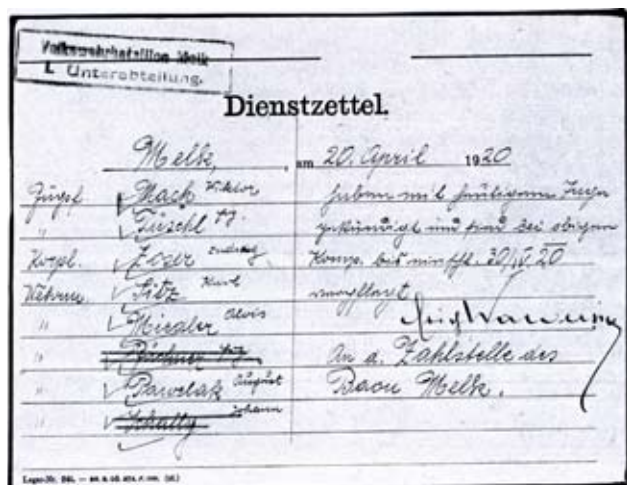 Volkswehrbataillon Melk
1. Unterabteilung.
Dienstzettel.
Melk, am 20. April 1920
Zugsf. Mack Viktor
" Tüschl Frz.
Korpl. Zoser Andreas
Wehrm. Sitz Karl
" Alois
" Frz.
" Pawelak August
" Johann
haben mit heutigem Tage
gekündigt und sind bei obiger
Komp. bis einschl. 30/IV 20
verpflegt
An d. Zahlstelle des
Baon Melk.